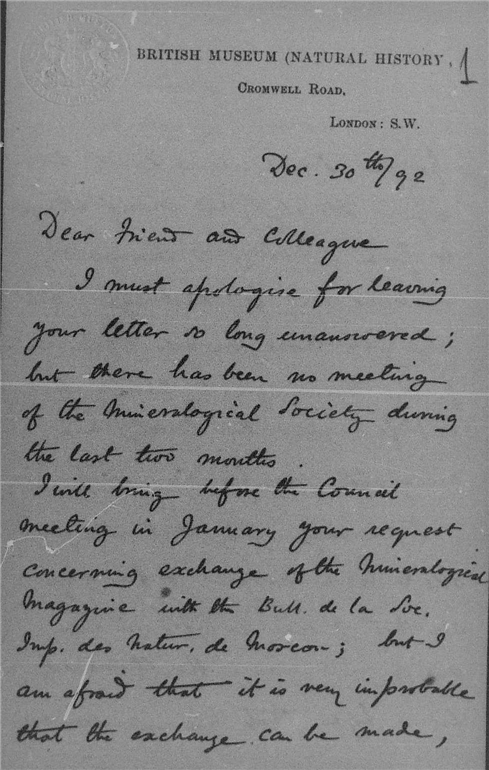 BRITISH MUSEUM (NATURAL HISTORY, 1
CROMWELL ROAD,
LONDON: S.W.
Dec. 30th/92
Dear Friend and Colleague
I must apologise for leaving
your letter so long unanswered;
but there has been no meeting
of the Mineralogical Society during
the last two months.
I will bring before the Council
meeting in January your request
concerning exchange of the Mineralogical
Magazine with the Bull. de la Soc.
Imp. des Natur. de Moscou; but I
am afraid that it is very improbable
that the exchange can be made,